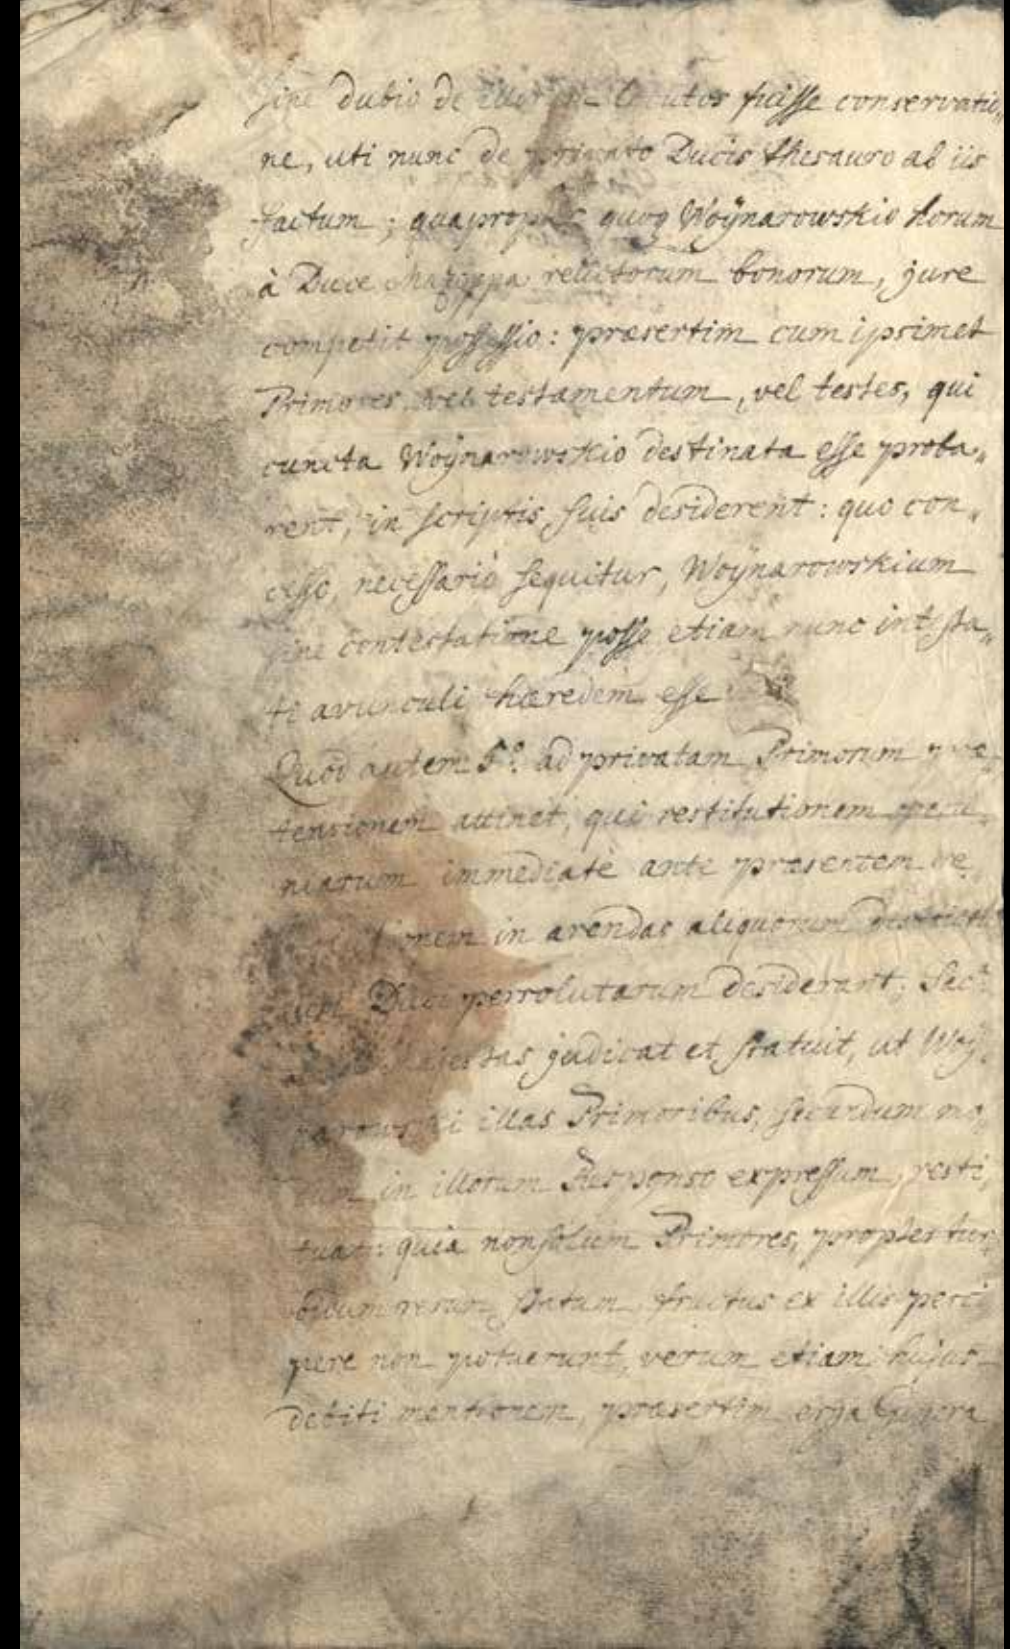 sine dubio de illorum locutos fuisse conservatio„
ne, uti nunc de privato Ducis thesauro ab iis
factum; quapropter quoq Woÿnarowskio horum
à Duce Mazeppa relictorum bonorum, jure
competit possessio: præsertim cum ipsimet
Primores vel testamentum, vel testes, qui
cuncta Woÿnarowskio destinata esse proba„
rent, in scriptis suis desiderent: quo con„
cesso, necessariò sequitur, Woÿnarowskium
sine contestatione posse etiam nunc intesta„
ti avunculi hæredem esse
Quod autem 5.º ad privatam Primorum præ„
tensionem attinet, qui restitutionem pecu„
niarum immediatè ante præsentem re„
in arendas aliquorum
Duci persolutarum desiderant; Sac.ª
judicat et statuit, ut Woÿ„
narowski illas Primoribus, secundum mo„
dum in illorum Responso expressum, resti„
tuat: quia non solum Primores, propter tur„
bidum rerum statum, fructus ex illis perci„
pere non potuerunt, verum etiam hujus
debiti mentionem, præsertim erga Genera